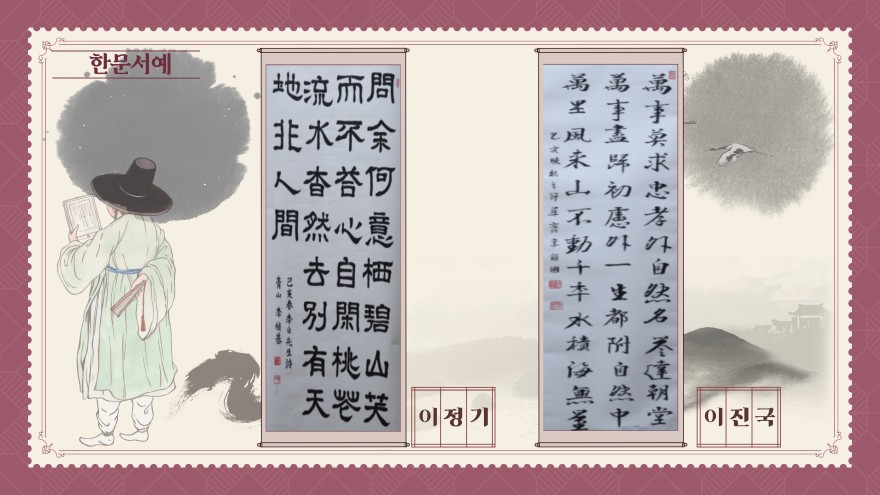 한문서예
問余何意栖碧山笑
而不荅心自閑桃花
流水杳然去別有天
地非人間
己亥春 李白先生詩
青山 李
이정기
萬事莫求忠孝外自然名達朝堂
萬事盡歸初慮外一生都附自然中
萬里風来山不動千年水積海無量
己亥晚秋之節 齋 李鎭國
이진국